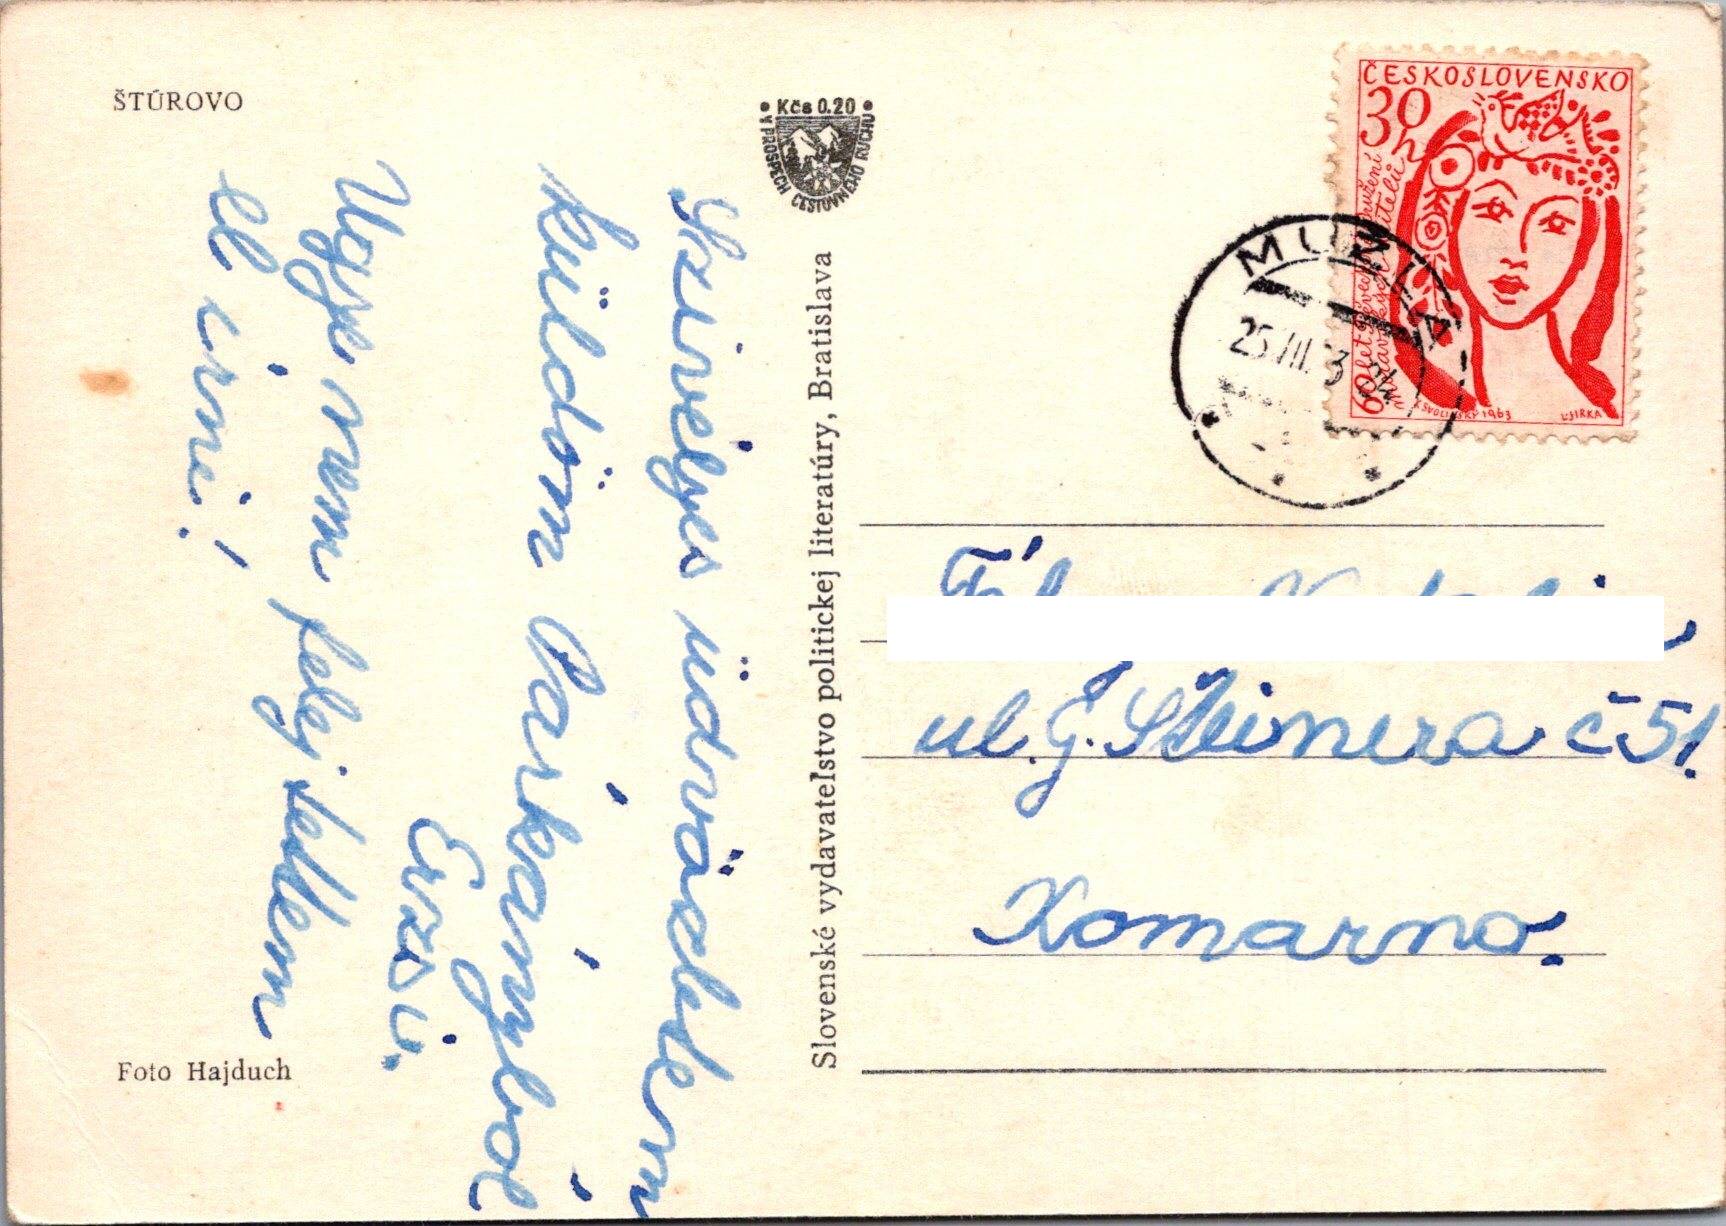 ŠTÚROVO
• Kčs 0.20 •
V PROSPECH CESTOVNÉHO RUCHU
Szivélyes üdvözletem
küldöm Párkányból
Erzsi.
Ugye nem felejtettem
el irni!
Foto Hajduch
Slovenské vydavatelstvo politickej literatúry, Bratislava
ČESKOSLOVENSKO
30h
60 let
K. SVOLINSKÝ 1963
L. JIRKA
MUŽLA
25.VII.63
ul. G. Steinera č 51.
Komarno.